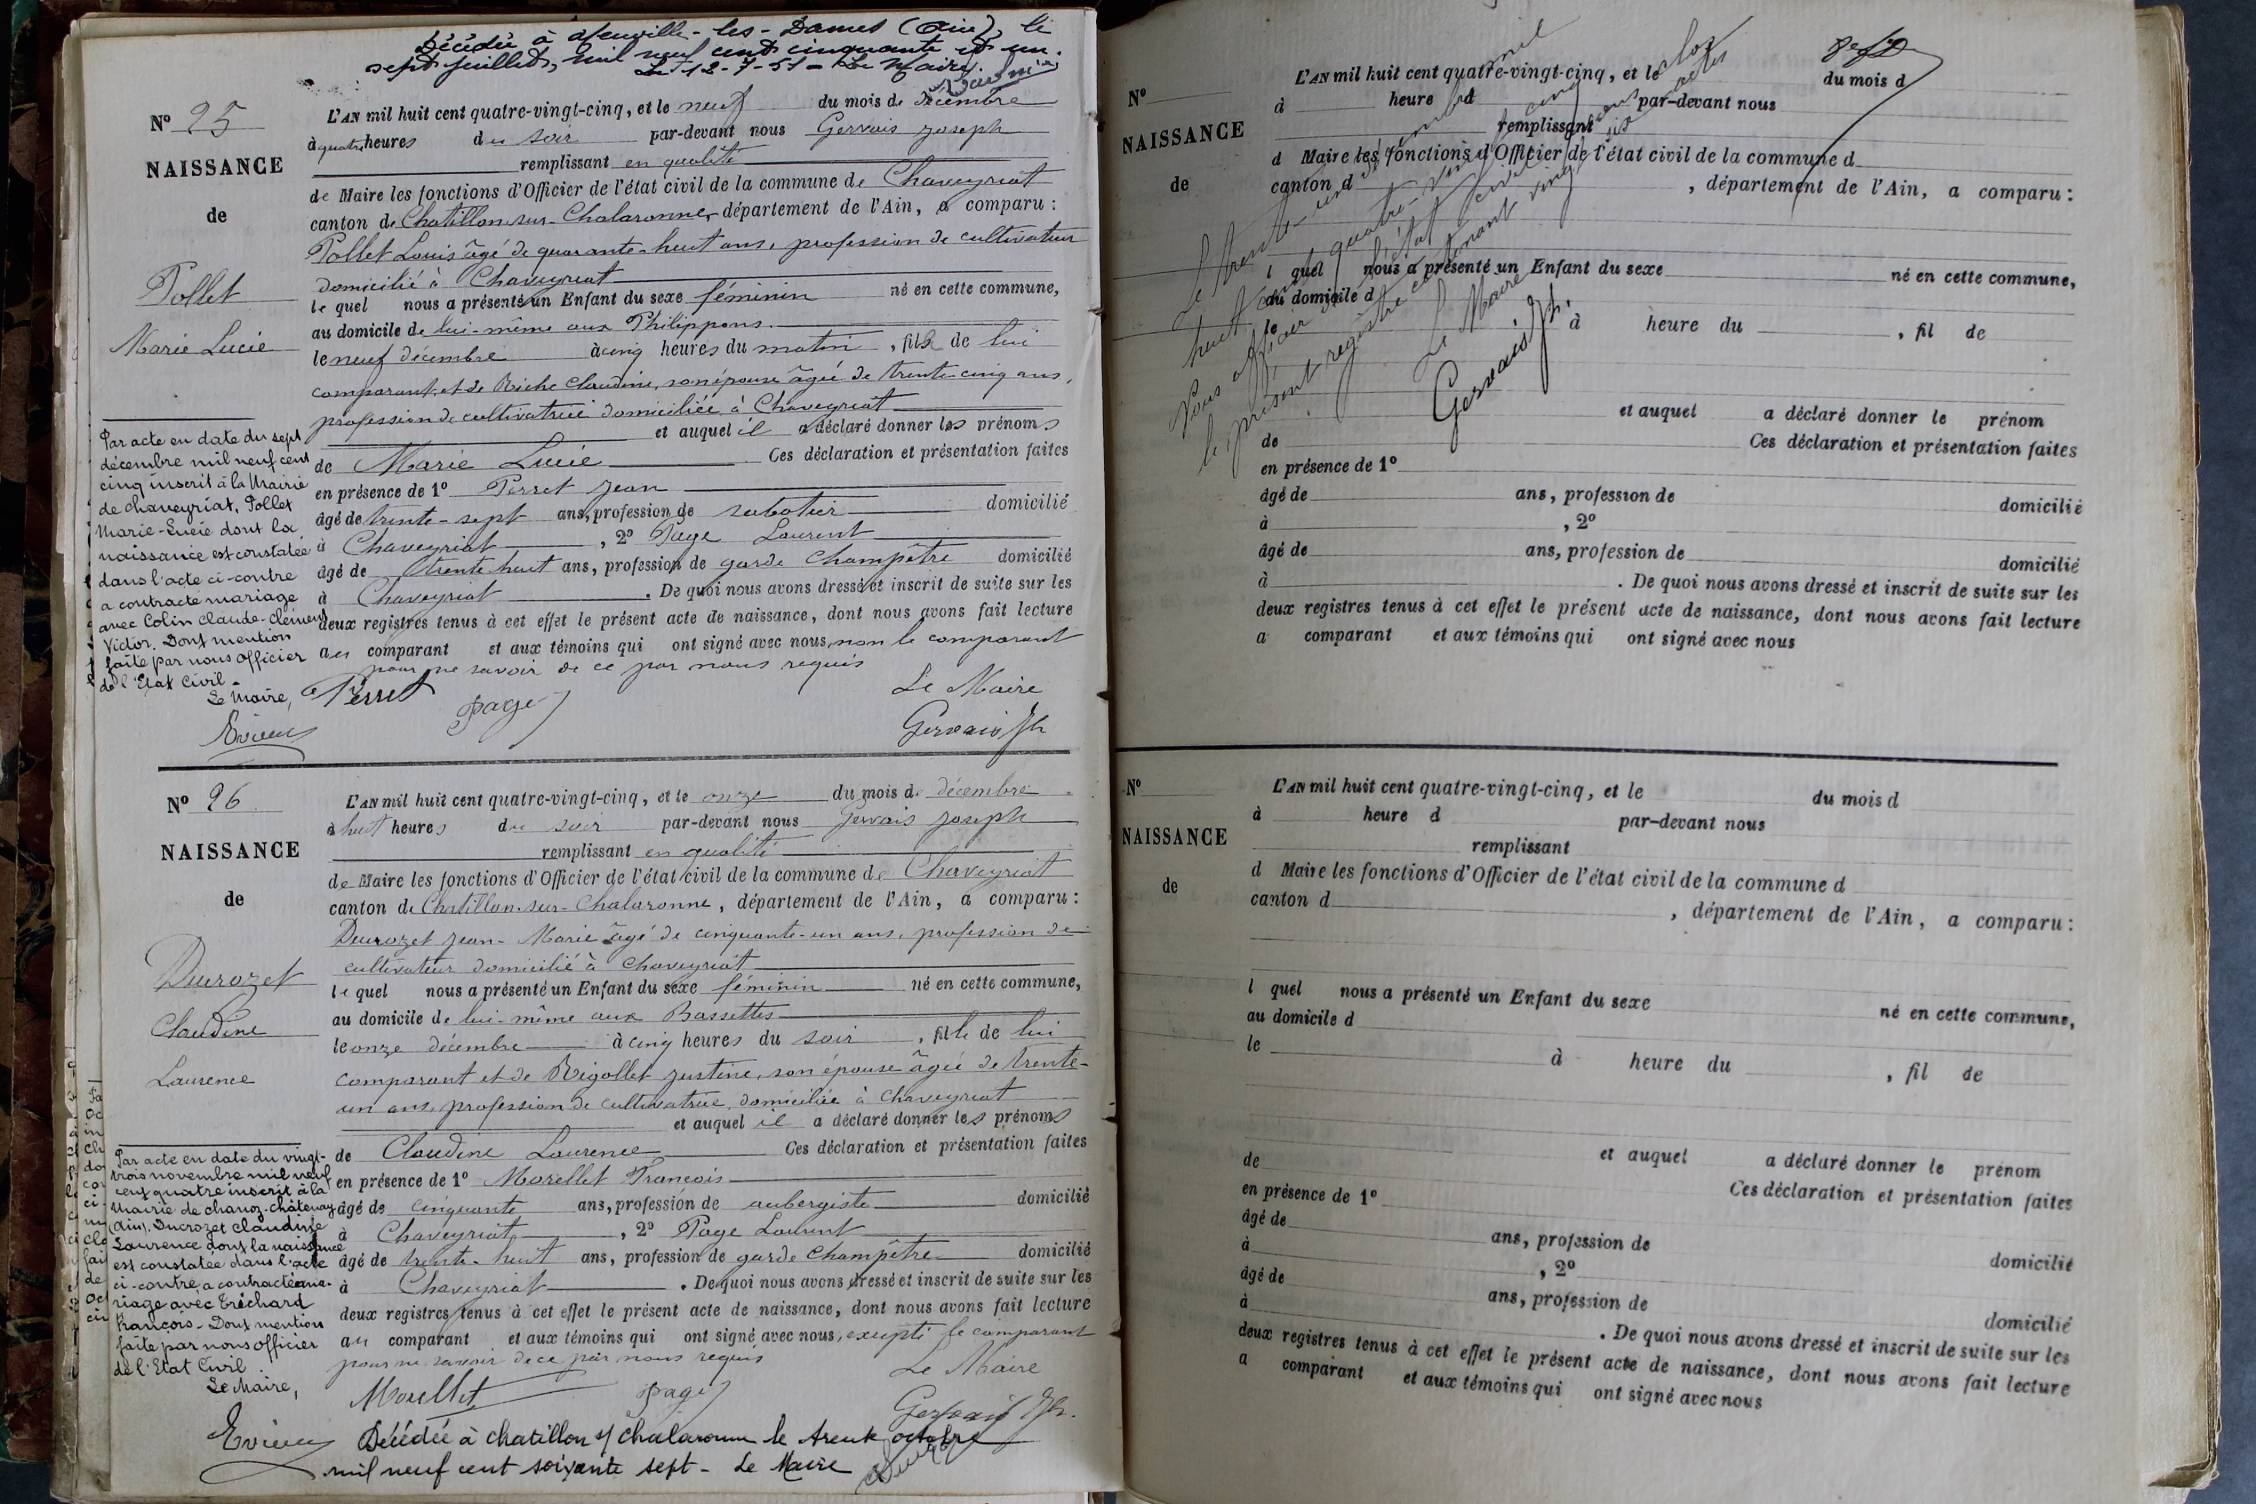 Décédée à Neuville-les-Dames (Ain), le
sept juillet, mil neuf cent cinquante et un.
Le 12-7-51 - Le Maire.
Nº 25
NAISSANCE
de
Pollet
Marie Lucie
L'AN mil huit cent quatre-vingt-cinq, et le neuf du mois de décembre
à quatre heures du soir par-devant nous Gervais Joseph
remplissant en qualité
de Maire les fonctions d'Officier de l'état civil de la commune de Chaveyriat
canton de Chatillon-sur-Chalaronne, département de l'Ain, a comparu :
Pollet Louis âgé de quarante-huit ans, profession de cultivateur
domicilié à Chaveyriat
lequel nous a présenté un Enfant du sexe féminin né en cette commune,
au domicile de lui-même aux Philippons
le neuf décembre à cinq heures du matin, fille de lui
comparant et de Riche Claudine, son épouse âgée de trente-cinq ans,
profession de cultivatrice domiciliée à Chaveyriat
et auquel il a déclaré donner les prénoms
de Marie Lucie Ces déclaration et présentation faites
en présence de 1º Perret Jean
âgé de trente-sept ans, profession de sabotier domicilié
à Chaveyriat, 2º Page Laurent
âgé de trente huit ans, profession de garde champêtre domicilié
à Chaveyriat. De quoi nous avons dressé et inscrit de suite sur les
deux registres tenus à cet effet le présent acte de naissance, dont nous avons fait lecture
au comparant et aux témoins qui ont signé avec nous, non le comparant
pour ne savoir de ce par nous requis
Perret Page Le Maire
Gervais Jh
Par acte en date du sept
décembre mil neuf cent
cinq inscrit à la Mairie
de Chaveyriat, Pollet
Marie-Lucie dont la
naissance est constatée
dans l'acte ci-contre
a contracté mariage
avec Colin Claude-Clément
Victor. Dont mention
faite par nous officier
de l'Etat Civil.
Le Maire,
Nº 26
NAISSANCE
de
Ducrozet
Claudine
Laurence
L'AN mil huit cent quatre-vingt-cinq, et le onze du mois de décembre
à huit heures du soir par-devant nous Gervais Joseph
remplissant en qualité
de Maire les fonctions d'Officier de l'état civil de la commune de Chaveyriat
canton de Chatillon-sur-Chalaronne, département de l'Ain, a comparu :
Ducrozet Jean-Marie âgé de cinquante-un ans, profession de
cultivateur domicilié à Chaveyriat
lequel nous a présenté un Enfant du sexe féminin né en cette commune,
au domicile de lui-même aux Bassettes
le onze décembre à cinq heures du soir, fille de lui
comparant et de Rigollet Justine, son épouse âgée de trente-
un ans, profession de cultivatrice, domiciliée à Chaveyriat
et auquel il a déclaré donner les prénoms
de Claudine Laurence Ces déclaration et présentation faites
en présence de 1º Morellet François
âgé de cinquante ans, profession de aubergiste domicilié
à Chaveyriat, 2º Page Laurent
âgé de trente-huit ans, profession de garde champêtre domicilié
à Chaveyriat. De quoi nous avons dressé et inscrit de suite sur les
deux registres tenus à cet effet le présent acte de naissance, dont nous avons fait lecture
au comparant et aux témoins qui ont signé avec nous, excepté le comparant
pour ne savoir de ce par nous requis
Le Maire
Morellet Page Gervais Jh.
Par acte en date du vingt-
trois novembre mil neuf
cent quatre inscrit à la
Mairie de Chanoz-Châtenay
(Ain), Ducrozet Claudine
Laurence dont la naissance
est constatée dans l'acte
ci-contre, a contracté ma-
riage avec Tréchard
François - Dont mention
faite par nous officier
de l'Etat Civil.
Le Maire,
Décédée à Chatillon s/ Chalaronne le trente octobre
mil neuf cent soixante sept - Le Maire
Nº
NAISSANCE
de
L'AN mil huit cent quatre-vingt-cinq, et le du mois d
à heure d par-devant nous
remplissant
d Maire les fonctions d'Officier de l'état civil de la commune d
canton d , département de l'Ain, a comparu :
l quel nous a présenté un Enfant du sexe né en cette commune,
au domicile d
le à heure du , fil de
et auquel a déclaré donner le prénom
de Ces déclaration et présentation faites
en présence de 1º
âgé de ans, profession de domicilié
à , 2º
âgé de ans, profession de domicilié
à . De quoi nous avons dressé et inscrit de suite sur les
deux registres tenus à cet effet le présent acte de naissance, dont nous avons fait lecture
a comparant et aux témoins qui ont signé avec nous
le trente-un décembre mil
huit cent quatre-vingt cinq
Nous officier de l'état civil avons clos
le présent registre contenant vingt six actes
Le Maire
Gervais Jh.
Nº
NAISSANCE
de
L'AN mil huit cent quatre-vingt-cinq, et le du mois d
à heure d par-devant nous
remplissant
d Maire les fonctions d'Officier de l'état civil de la commune d
canton d , département de l'Ain, a comparu :
l quel nous a présenté un Enfant du sexe né en cette commune,
au domicile d
le à heure du , fil de
et auquel a déclaré donner le prénom
de Ces déclaration et présentation faites
en présence de 1º
âgé de ans, profession de domicilié
à , 2º
âgé de ans, profession de domicilié
à . De quoi nous avons dressé et inscrit de suite sur les
deux registres tenus à cet effet le présent acte de naissance, dont nous avons fait lecture
a comparant et aux témoins qui ont signé avec nous